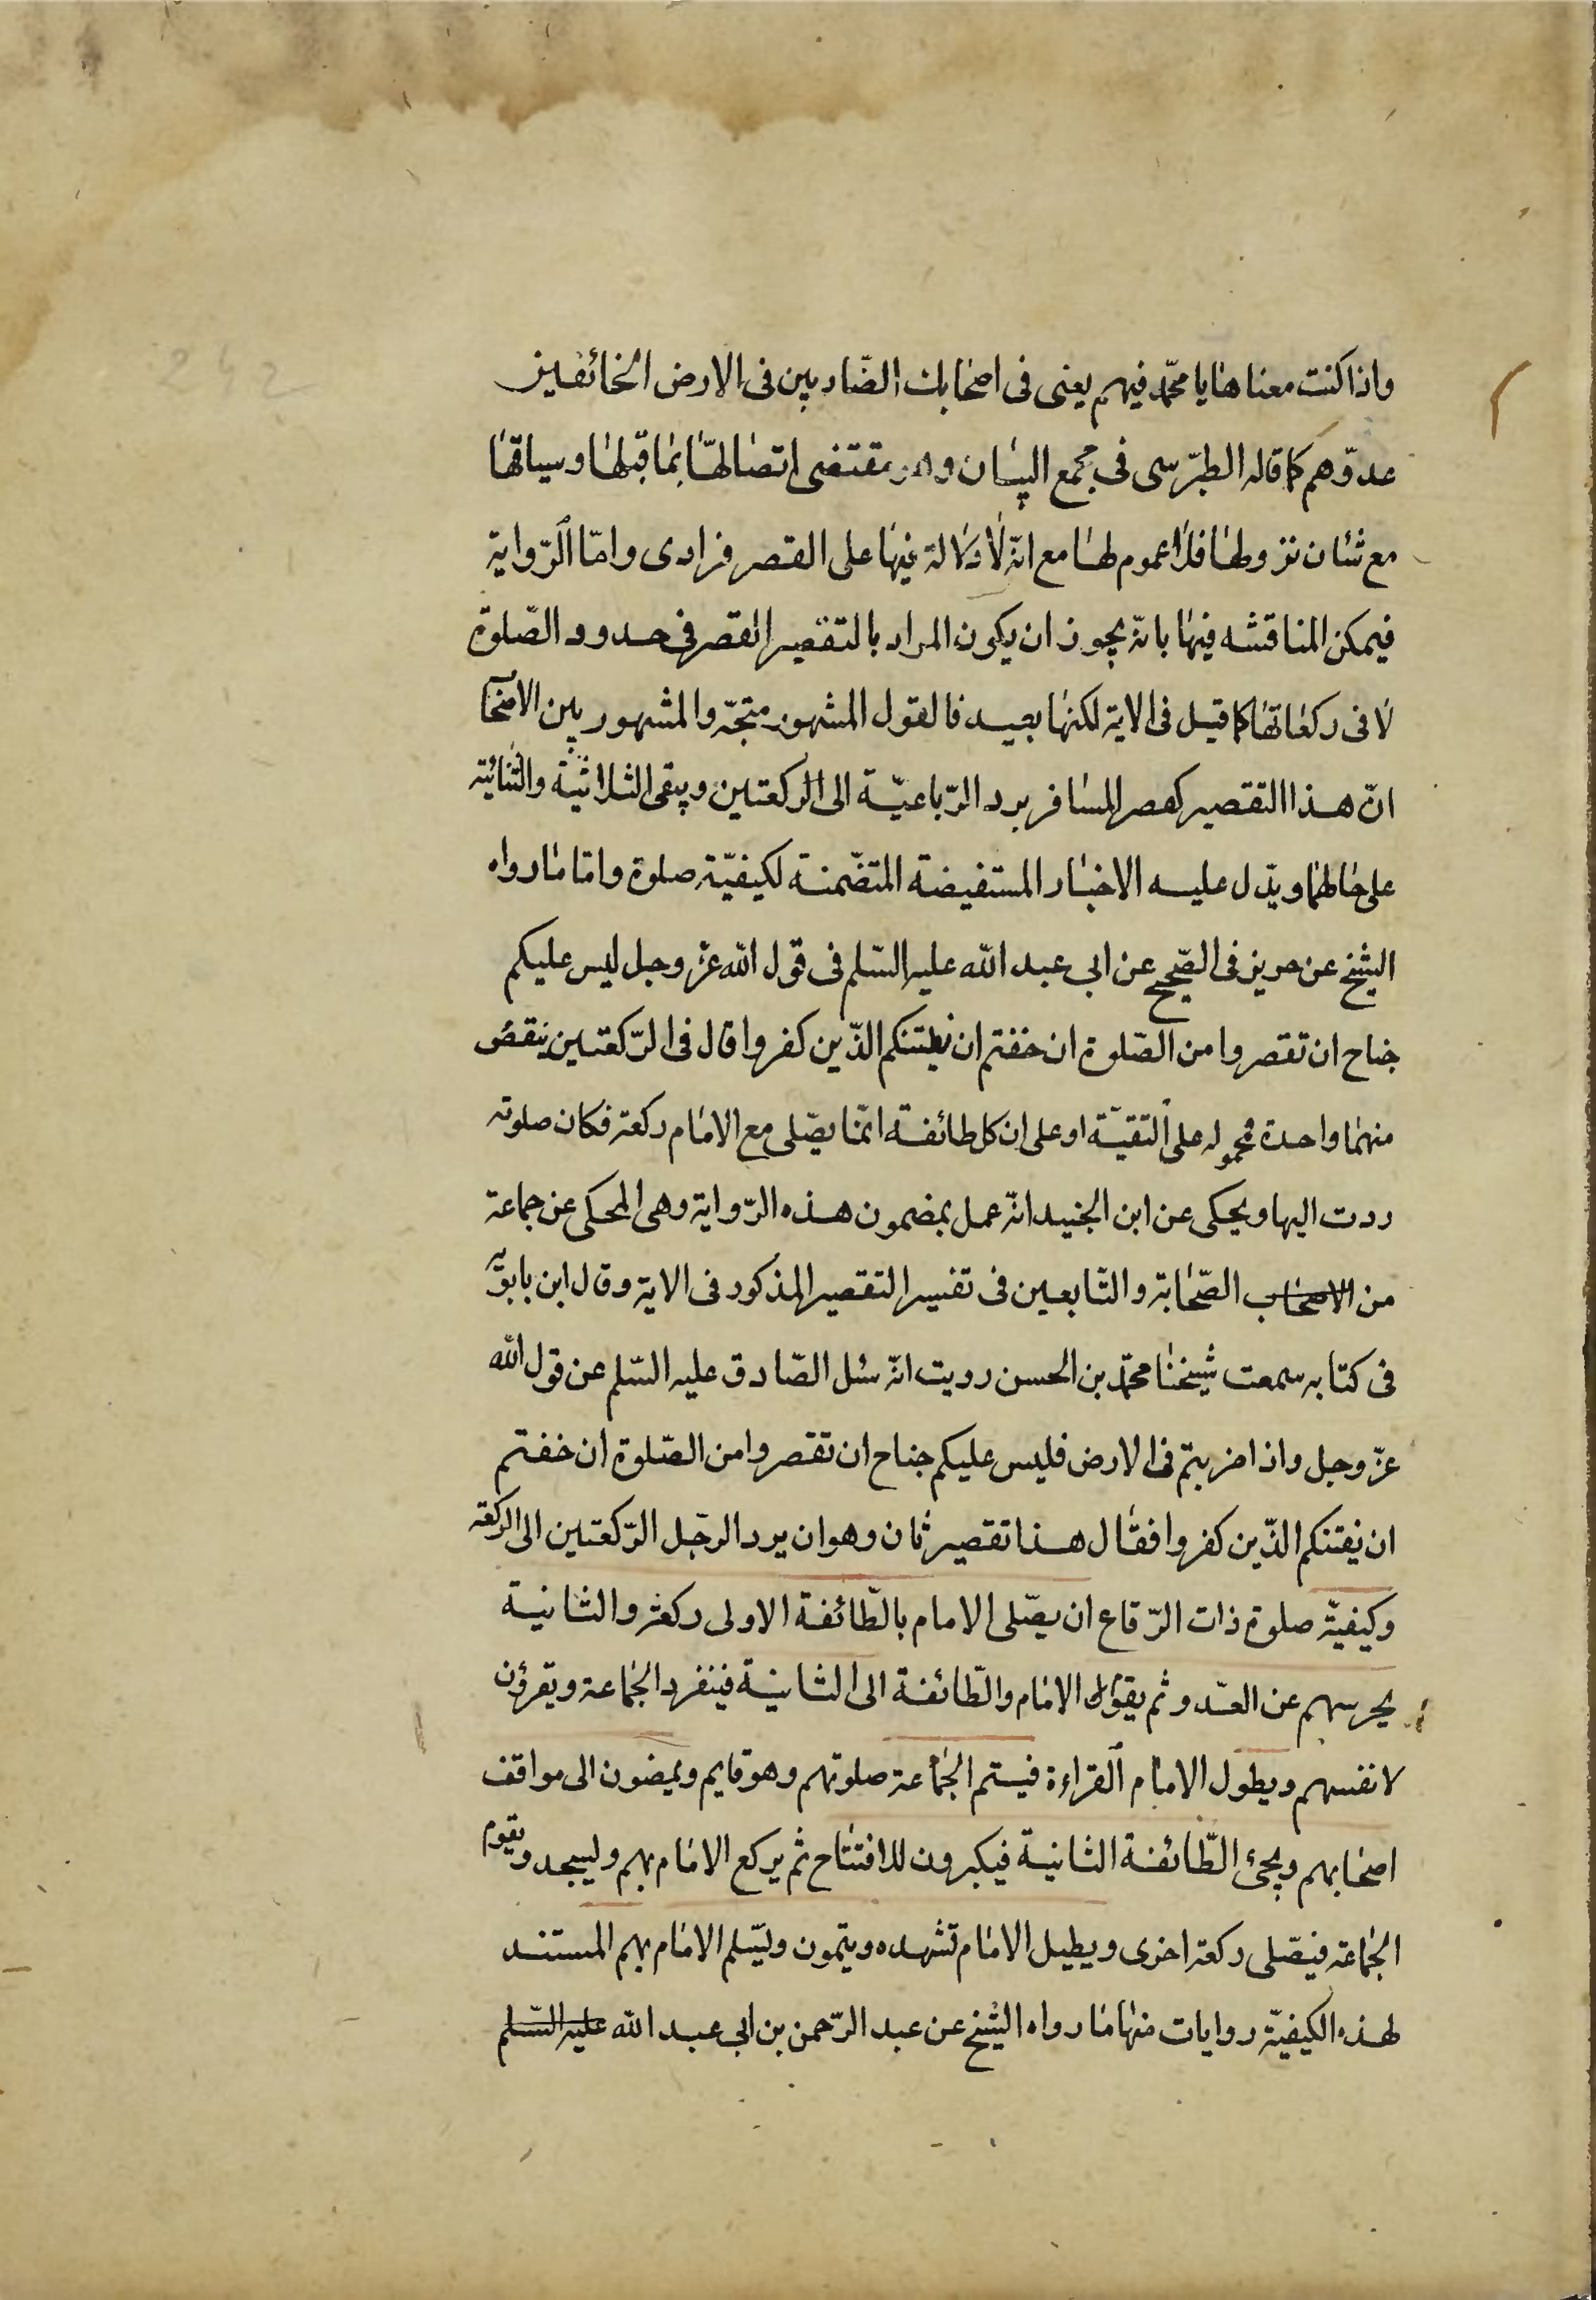 واذا كنت معناها يا محمّد فيهم يعنى فى اصحابك الضّاربين فى الارض الخائفين
عدوّهم كما قاله الطبرّسى فى مجمع البيان وهو مقتضى اتصالها بما قبلها وسياقها
مع شان نزولها فلا عموم لها مع انّه لا دلالة فيها على القصر فرادى وامّا الرّواية
فيمكن المناقشه فيها بانّه يجوز ان يكون المراد بالتقصير القصر فى حدود الصّلوة
لا فى ركعاتها كما قيل فى الاية لكنها بعيد فالقول المشهور متجّه والمشهور بين الاصحاب
انّ هذا التقصير كقصر المسافر يرد الرّباعيّة الى الركعتين ويبقى الثلاثيّة والثنائيّة
على حالهما ويدّل عليه الاخبار المستفيضة المتضّمنة لكيفيّة صلوة وامّا ما رواه
الشيخ عن حريز فى الصّحيح عن ابى عبد الله عليه السّلم فى قول الله عزّ وجل ليس عليكم
جناح ان تقصروا من الصّلوة ان خفتم ان يفتنكم الذّين كفروا قال فى الرّكعتين ينقص
منهما واحدة محموله على التقيّة او على ان كل طائفة انّما يصّلى مع الامام ركعة فكان صلوته
ردت اليها ويحكى عن ابن الجنيد انّه عمل بمضمون هذه الرّواية وهى المحكى عن جماعة
من الاصحاب الصّحابة والتّابعين فى تفسير التقصير المذكور فى الاية وقال ابن بابويّه
فى كتابه سمعت شيخنا محمّد بن الحسن رويت انّه سئل الصّادق عليه السّلم عن قول الله
عزّ وجل واذا ضربتم فى الارض فليس عليكم جناح ان تقصروا من الصّلوة ان خفتم
ان يفتنكم الذّين كفروا فقال هذا تقصير ثان وهو ان يرد الرجّل الرّكعتين الى الركعة
وكيفيّة صلوة ذات الرّقاع ان يصّلى الامام بالطّائفة الاولى ركعة والثانية
يحرسهم عن العدو ثم يقوم الامام والطّائفة الى الثانية فينفرد الجماعة ويقرؤن
لانفسهم ويطول الامام القراءة فيستم الجماعة صلوتهم وهو قايم ويمضون الى مواقف
اصحابهم ويجئ الطّائفة الثانية فيكبرون للافتتاح ثم يركع الامام بهم وليسجد ويقوم
الجماعة فيصّلى ركعة اخرى ويطيل الامام تشهده ويتمون ويسّلم الامام بهم المستند
لهذه الكيفيّة روايات منها ما رواه الشيخ عن عبد الرّحمن بن ابى عبد الله عليه السّلم